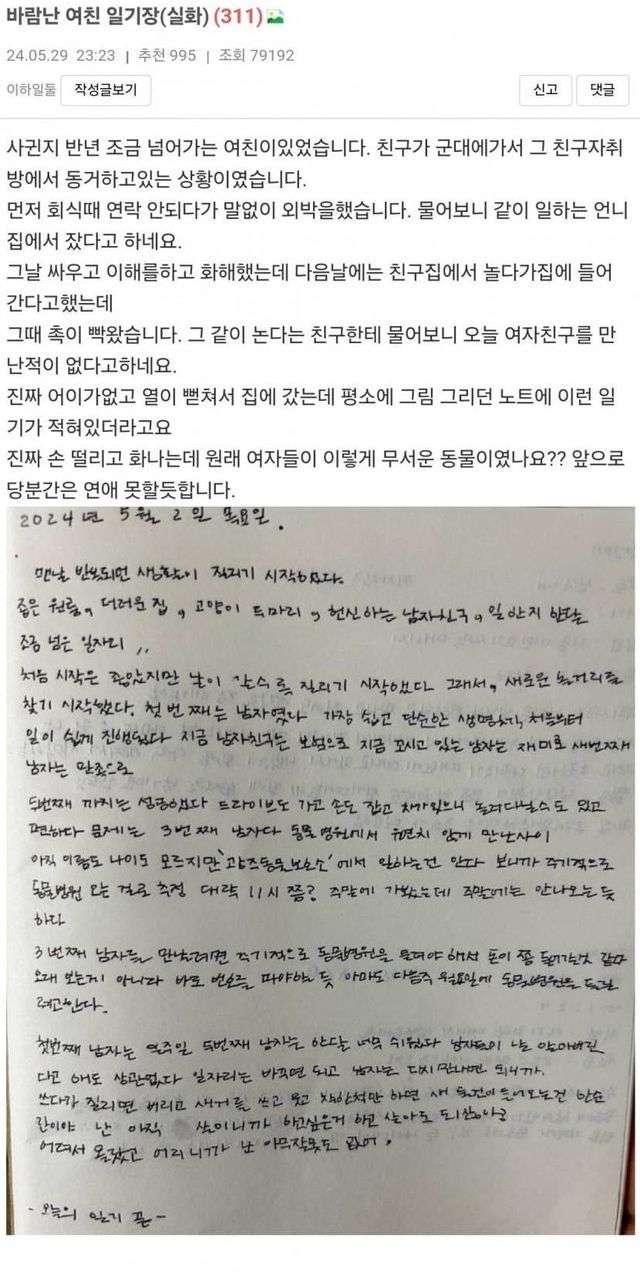 바람난 여친 일기장(실화) (311)
24.05.29 23:23 | 추천 995 | 조회 79192
이하일둘 작성글보기 신고 댓글
사귄지 반년 조금 넘어가는 여친이있었습니다. 친구가 군대에가서 그 친구자취
방에서 동거하고있는 상황이였습니다.
먼저 회식때 연락 안되다가 말없이 외박을했습니다. 물어보니 같이 일하는 언니
집에서 잤다고 하네요.
그날 싸우고 이해를하고 화해했는데 다음날에는 친구집에서 놀다가집에 들어
간다고했는데
그때 촉이 빡왔습니다. 그 같이 논다는 친구한테 물어보니 오늘 여자친구를 만
난적이 없다고하네요.
진짜 어이가없고 열이 뻗쳐서 집에 갔는데 평소에 그림 그리던 노트에 이런 일
기가 적혀있더라고요
진짜 손 떨리고 화나는데 원래 여자들이 이렇게 무서운 동물이였나요?? 앞으로
당분간은 연애 못할듯합니다.
2024년 5월 2일 목요일.
맨날 반복되면 생활이 질리기 시작했다.
좁은 원룸, 더러운 집, 고양이 두마리, 헌신하는 남자친구, 일한지 한달
조금 넘은 일자리,,
처음 시작은 좋았지만 날이 갈수록 질리기 시작했다 그래서, 새로운 놀거리를
찾기 시작했다. 첫번째는 남자였다 가장 쉽고 단순한 생명체, 처음부터
일이 쉽게 진행됐다 지금 남자친구는 보험으로 지금 꼬시고 있는 남자는 재미로 세번째
남자는 만족으로
두번째 까지는 성공했다 드라이브도 가고 손도 잡고 차가있으니 놀러다닐수도 있고
편하다 문제는 3번째 남자다 동물병원에서 우연치 않게 만난사이
아직 이름도 나이도 모르지만 '광주동물보호소'에서 일하는건 안다 보니까 주기적으로
동물병원 오는 걸로 추정 대략 11시 쯤? 주말에 가봤는데 주말에는 안나오는 듯
하다
3번째 남자를 만날려면 주기적으로 동물병원을 들려야 해서 돈이 쫌 들거는것 같다
오래 보는게 아니라 바로 번호를 따야할 듯 아마도 다음주 월요일에 동물병원을 들릴
려고한다.
첫번째 남자는 일주일 두번째 남자는 한달 너무 쉬웠다 남자들이 나를 알아버린
다고 해도 상관없다 일자리는 바꾸면 되고 남자는 다시 만나면 되니까.
쓰다가 질리면 버리고 새거를 쓰고 울고 착한척만 하면 새 물건이 들어오는건 한순
간이야 난 아직 살이니까 하고싶은거 하고 살아도 되잖아?
어려서 몰랐고 어리니까 난 아무잘못도 없어.
- 오늘의 일기 끝 -